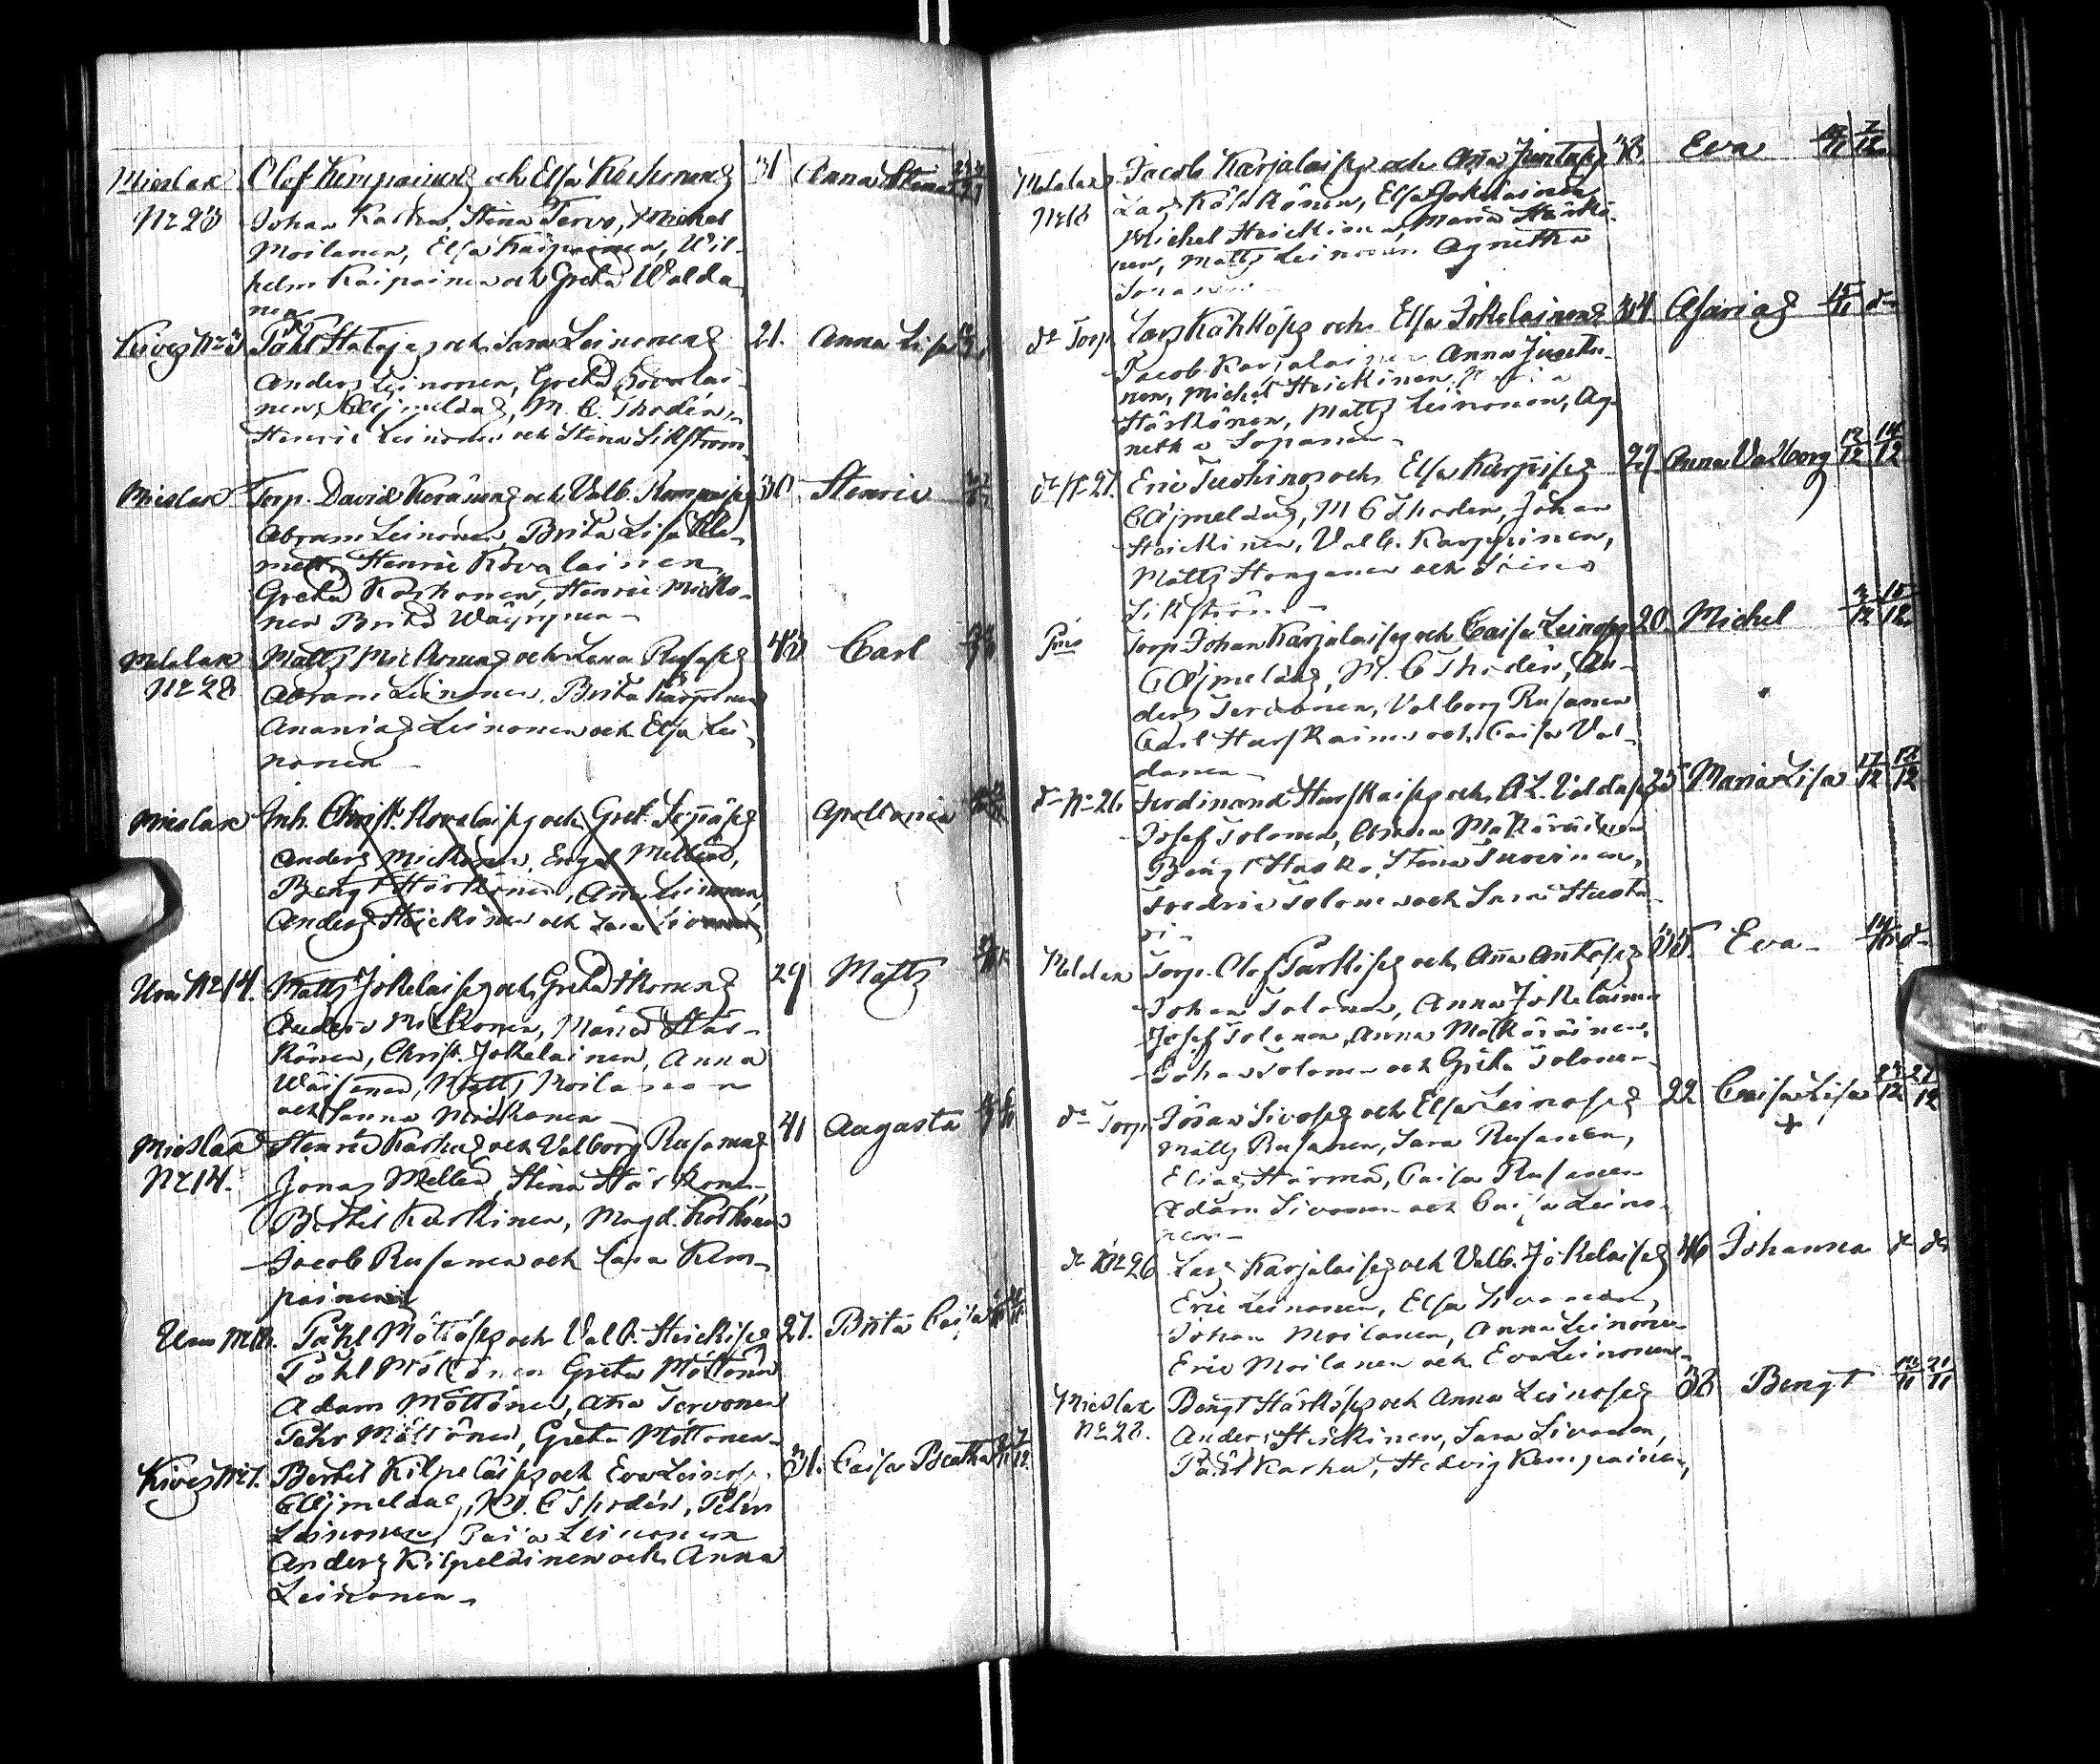 Mieslax Olof Kempainens och Elsa Karhunens 31 Anna Stina
Nr 28 Johan Karhu, Stina Tervo, Michel
Moilanen, Elsa Kaipainen, Wil-
helm Kaipainen och Greta Walda
nen
Kives Nr 3 Påhl Hatajas och Sara Leinonens 21. Anna Lisa
Anders Leinonen, Greta Kovalai-
nen, C Ajmelaus, M. C. Thodén,
Henric Leinonen och Stina Sikström
Mieslax Torp. David Keränens och Valb. Kempais 30. Henric
Abram Leinonen, Brita Lisa Kle-
metti, Henric Kovalainen,
Greta Karhonen, Henric Micko-
nen Brita Wäyrynen
Melalax Matts Mickonens och Lena Rusas 43 Carl
Nr 28 Abram Leinonen, Brita Karppinen
Ananias Leinonen och Elsa Lei-
nonen
Mieslax Inh. Christ. Kovalaisens och Gret. Seppäs Apollonia
Anders Mickonen, Engel Mellin,
Bengt Härkönen, Anna Leinonen,
Anders Heickinen och Sara Sivonen
Ura Nr 14. Matts Jokelaisens och Greta Ikonens 29 Matts
Anders Mickonen, Maria Här-
könen, Christ. Jokelainen, Anna
Wäisenen, Matts Moilanen
och Sanna Mickonen
Mieslax Henric Karhus och Valborg Rusanens 41 Augusta
Nr 14. Jonas Mellin, Stina Härkönen,
Bertel Kurkinen, Magd. Korhonen
Jacob Rusanen och Sara Kem-
painen
Ura Påhl Möttöses och Valb. Heickises 27. Brita Caisa
Påhl Möttönen Greta Möttönen
Adam Möttönen, Anna Tervonen
Pehr Möttönen, Greta Möttönen
Kives Nr 1. Bertel Kilpeläises och Eva Leinos 31. Caisa Beatha
C Ajmelaus, M. C Thodén, Pehr
Leinonen, Caisa Leinonen
Anders Kilpeläinen och Anna
Leinonen
Melalax Jacob Karjalaises och Anna Juntus 38. Eva 7/12
Nr 18 Lars Kähkönen, Elsa Jokelainen
Michel Heickinen, Maria Härkö-
nen, Matts Leinonen Agnetha
Sopanen
do Torp Lars Kähkönens och Elsa Jokelainens 34 Asarias do
Jacob Karjalainen Anna Juntu-
nen, Michel Heickinen, Maria
Härkönen, Matts Leinonen, Ag-
netha Sopanen
do Nr 27. Eric Tuskins och Elsa Karpis 29. Anna Valborg 12/12 14/12
C Ajmelaus, M C Thodén, Johan
Heickinen, Valb. Karppinen,
Matts Horganen och Stina
Sikström
Torp. Johan Karjalaises och Caisa Leinos 20. Michel 15/12
C Ajmelaus, M. C Thodén, An-
ders Tervonen, Valborg Rusanen
Carl Hurskainen och Caisa Val-
danen
do Nr 26 Ferdinand Hurskaises och A L. Valdas 25 Maria Lisa 17/12 18/12
Josef Tolonen, Anna Mäkäräinen
Bengt Harka, Stina Tuovinen,
Fredric Tolonen och Sara Husta-
ri
Melalax Torp. Olof Parkises och Anna Antos 35. Eva do
Johan Tolonen, Anna Jokelainen
Josef Tolonen, Anna Mäkäräinen,
Johan Tolonen och Greta Tolonen
do Torp. Jöran Sivoses och Elsa Leinoses 22 Caisa Lisa 27/12
Matts Rusanen, Sara Rusanen, +
Elias Härmä, Caisa Rusanen
Adam Sivonen och Caisa Leino-
nen
do Nr 26 Lars Karjalaises och Valb. Jokelaises 46 Johanna do do
Eric Leinonen, Elsa Sivonen,
Johan Moilanen, Anna Leinonen
Eric Moilanen och Eva Leinonen
Mieslax Bengt Härköses och Anna Leinoses 38 Bengt 21/11
Nr 28. Anders Heickinen, Sara Sivonen,
Påhl Karhu, Hedvig Kempainen,